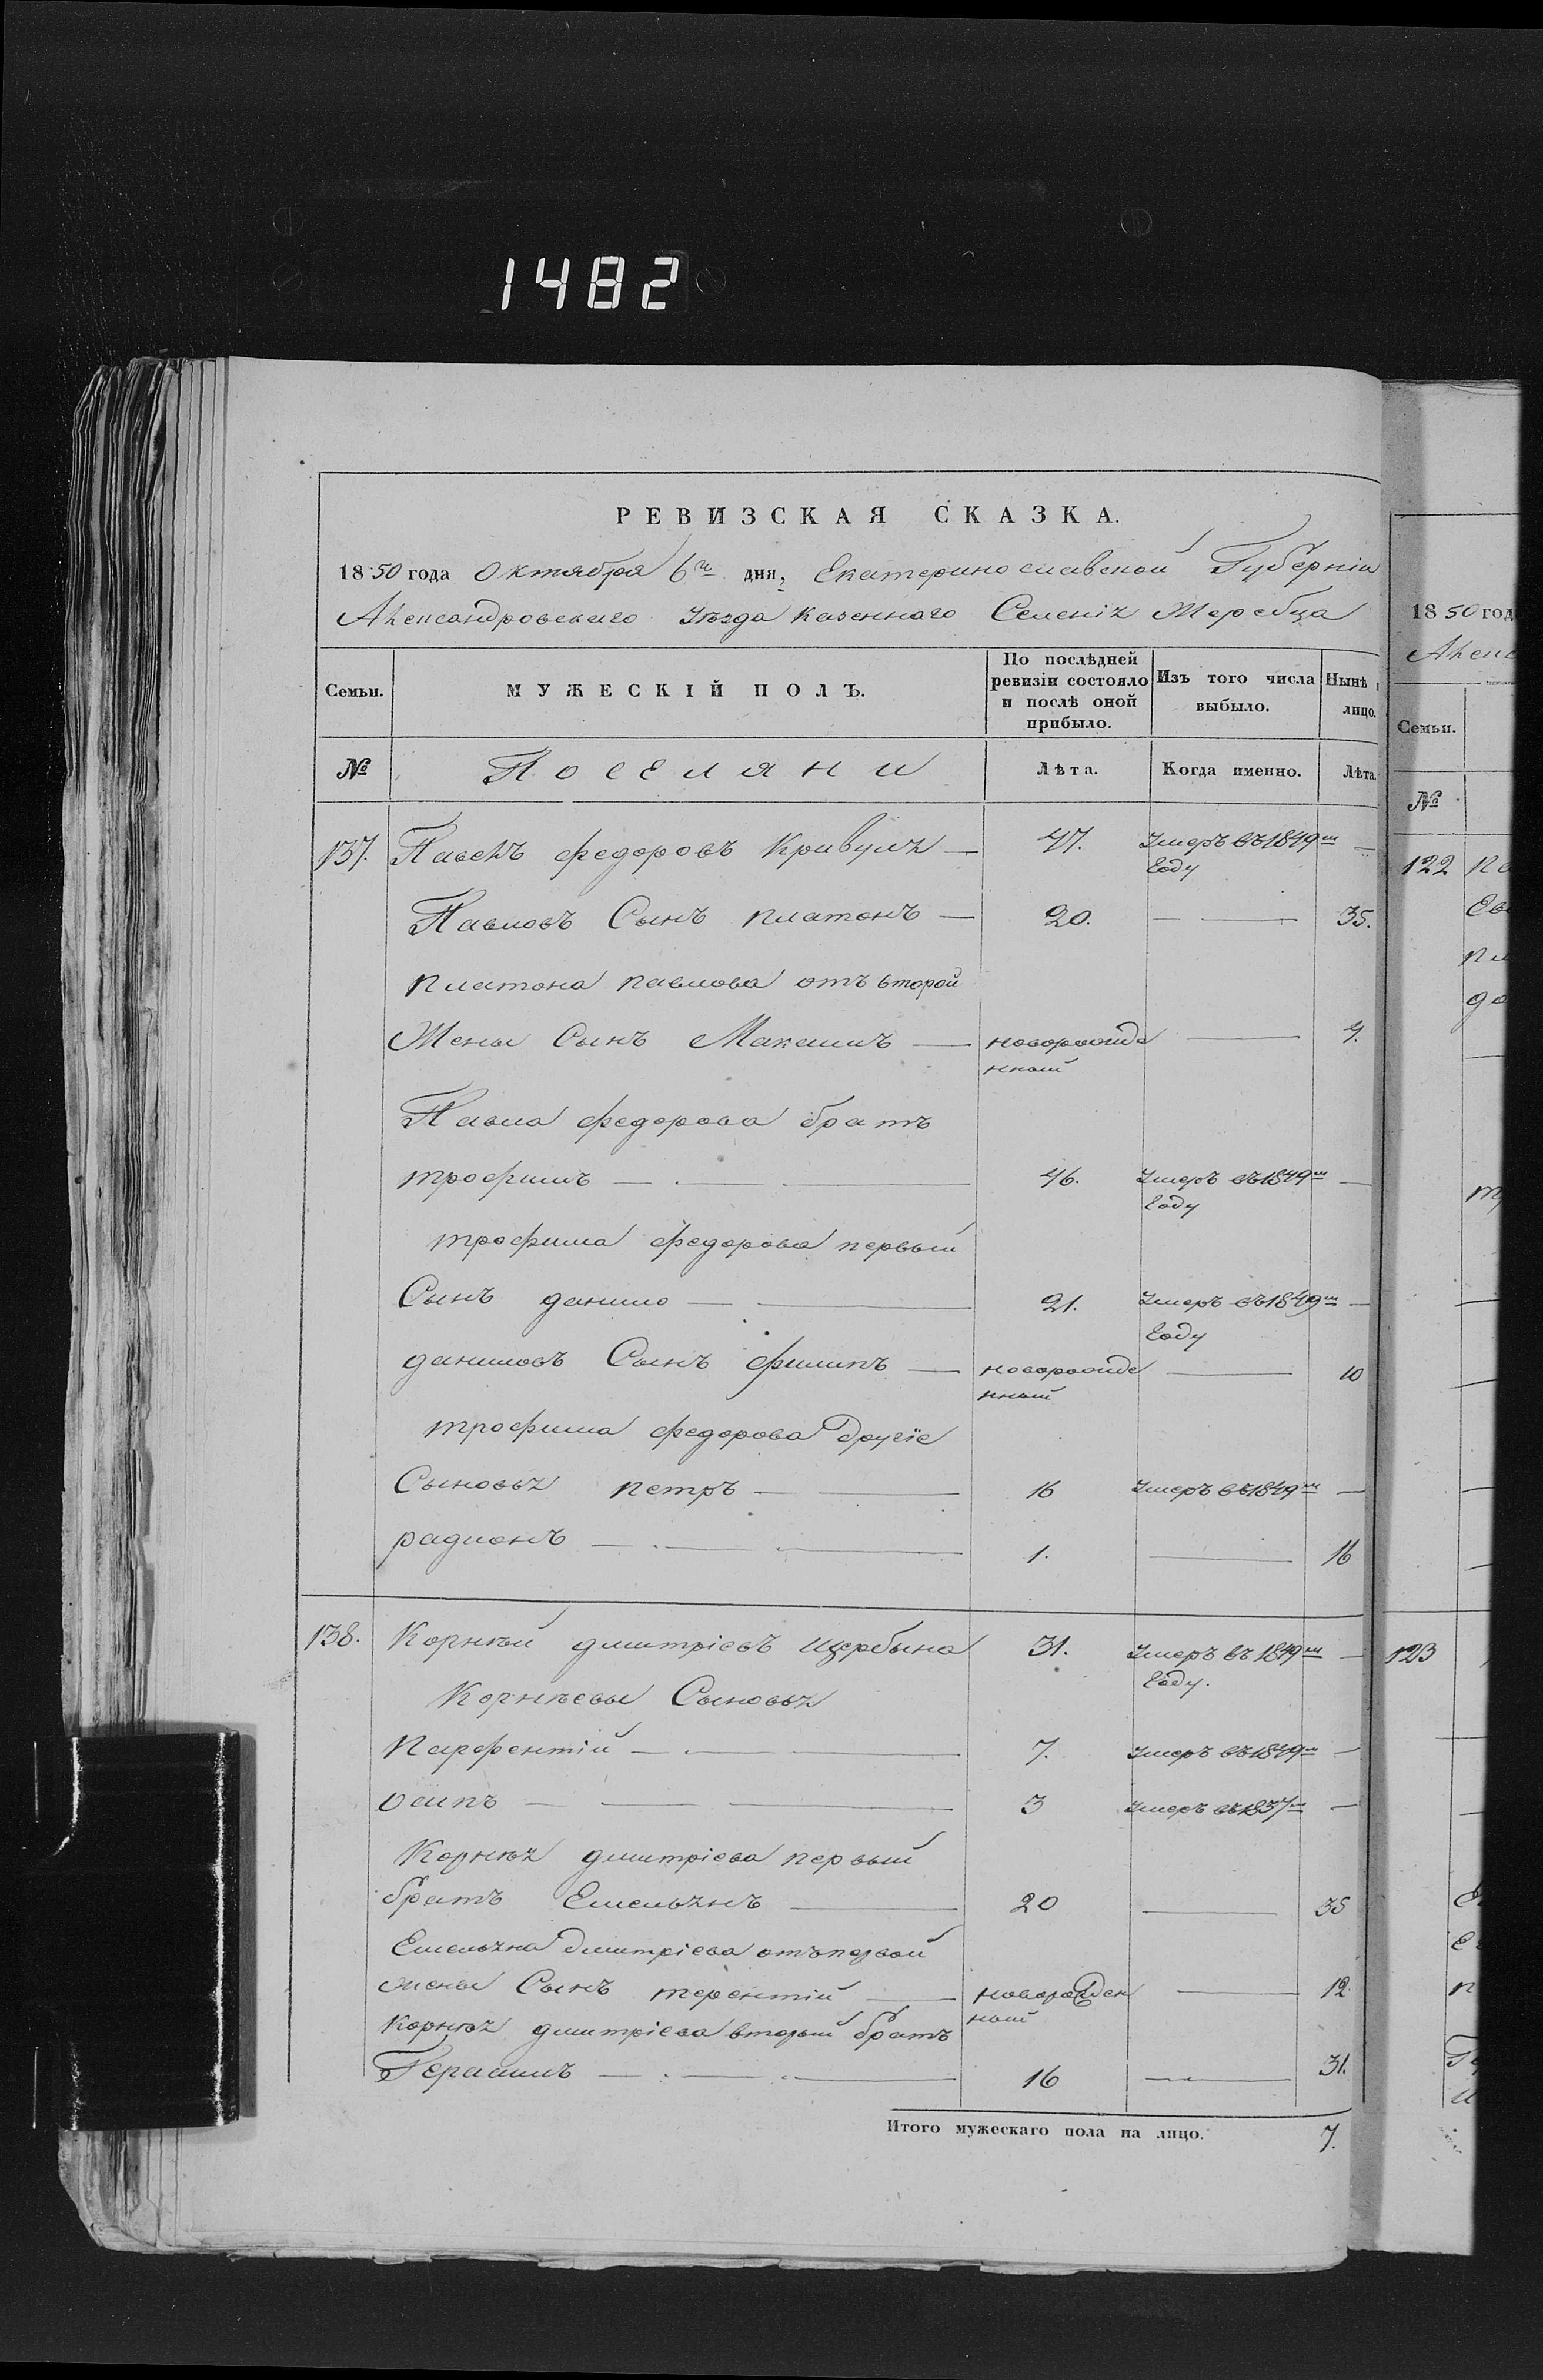 1482
РЕВИЗСКАЯ СКАЗКА.
1850 года Октября 6го дня, Екатеринославской Губерніи
Александровскаго Уѣзда Казеннаго Селенія Жеребца
Семьи. МУЖЕСКІЙ ПОЛЪ. По послѣдней ревизіи состояло и послѣ оной прибыло. Изъ того числа выбыло. Нынѣ лицо.
№ Поселяни Лѣта. Когда именно. Лѣта.
137. Павелъ федоровъ Кривуля — 47. Умеръ въ 1849м Году —
Павловъ Сынъ платонъ — 20. — 35.
платона павлова отъ второй
Жены Сынъ Максимъ — новорожде нный — 4.
Павла федорова братъ
трофимъ — 46. Умеръ въ 1849м Году —
трофима федорова первый
Сынъ данило — 21. Умеръ въ 1849м Году —
даниловъ Сынъ филипъ — новорожде нный — 10
трофима федорова другіе
Сыновья петръ — 16 Умеръ въ 1849м —
радионъ — 1. — 16
138. Корнѣй дмитріевъ щербына 31. Умеръ въ 1849м Году. —
Корнѣевы Сыновья
Парфентій — 7. Умеръ въ 1849м —
осипъ — 3 Умеръ въ 1837м —
Корнѣя дмитріева первый
братъ Емельянъ — 20 — 35
Емельяна дмитріева отъ первой
жены Сынъ терентій — новорожден ный — 12.
Корнѣя дмитріева вторый братъ
Герасимъ — 16 — 31.
Итого мужескаго пола на лицо. 7.
1850 год
Алекс
Семьи.
№
122
123